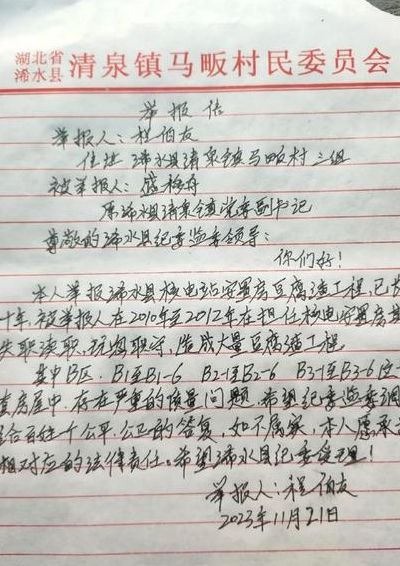 湖北省
浠水县 清泉镇马畈村民委员会
举报信
举报人：程伯友
住址 浠水县清泉镇马畈村三组
被举报人：
原浠水县清泉镇党委副书记
尊敬的浠水县纪委监委领导：
你们好！
本人举报浠水县核电站安置房豆腐渣工程，已
十年，被举报人在2010年至2012年在担任核电安置房
失职渎职，玩忽职守，造成大量豆腐渣工程。
其中B区，B1至B1-6 B2-1至B2-6 B3-1至B3-6
房屋中，存在严重的质量问题，希望纪委监委
给百姓一个公平，公正的答复，如不属实，本人愿承
相对应的法律责任。希望浠水县纪委受理！
举报人：程伯友
2023年11月21日